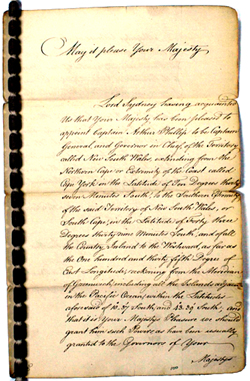 May it please Your Majesty
Lord Sydney having acquainted
Us that Your Majesty has been pleased to
appoint Captain Arthur Phillip to be Captain
General and Governor in Chief of the Territory
called New South Wales, extending from the
Northern Cape or Extremity of the Coast called
Cape York in the Latitude of Ten Degrees thirty
seven Minutes South, to the Southern Extremity
of the said Territory of New South Wales, or
South Cape, in the Latitude of Forty three
Degrees thirty nine Minutes South, and of all
the Country Inland to the Westward, as far as
the One hundred and thirty fifth Degree of
East Longitude, reckoning from the Meridian
of Greenwich, including all the Islands adjacent
in the Pacific Ocean, within the Latitudes
aforesaid of 10.37 South, and 43.39 South, and
that it is Your Majesty's Pleasure we should
grant him such Powers as have been usually
granted to the Governors of Your
Majesty's